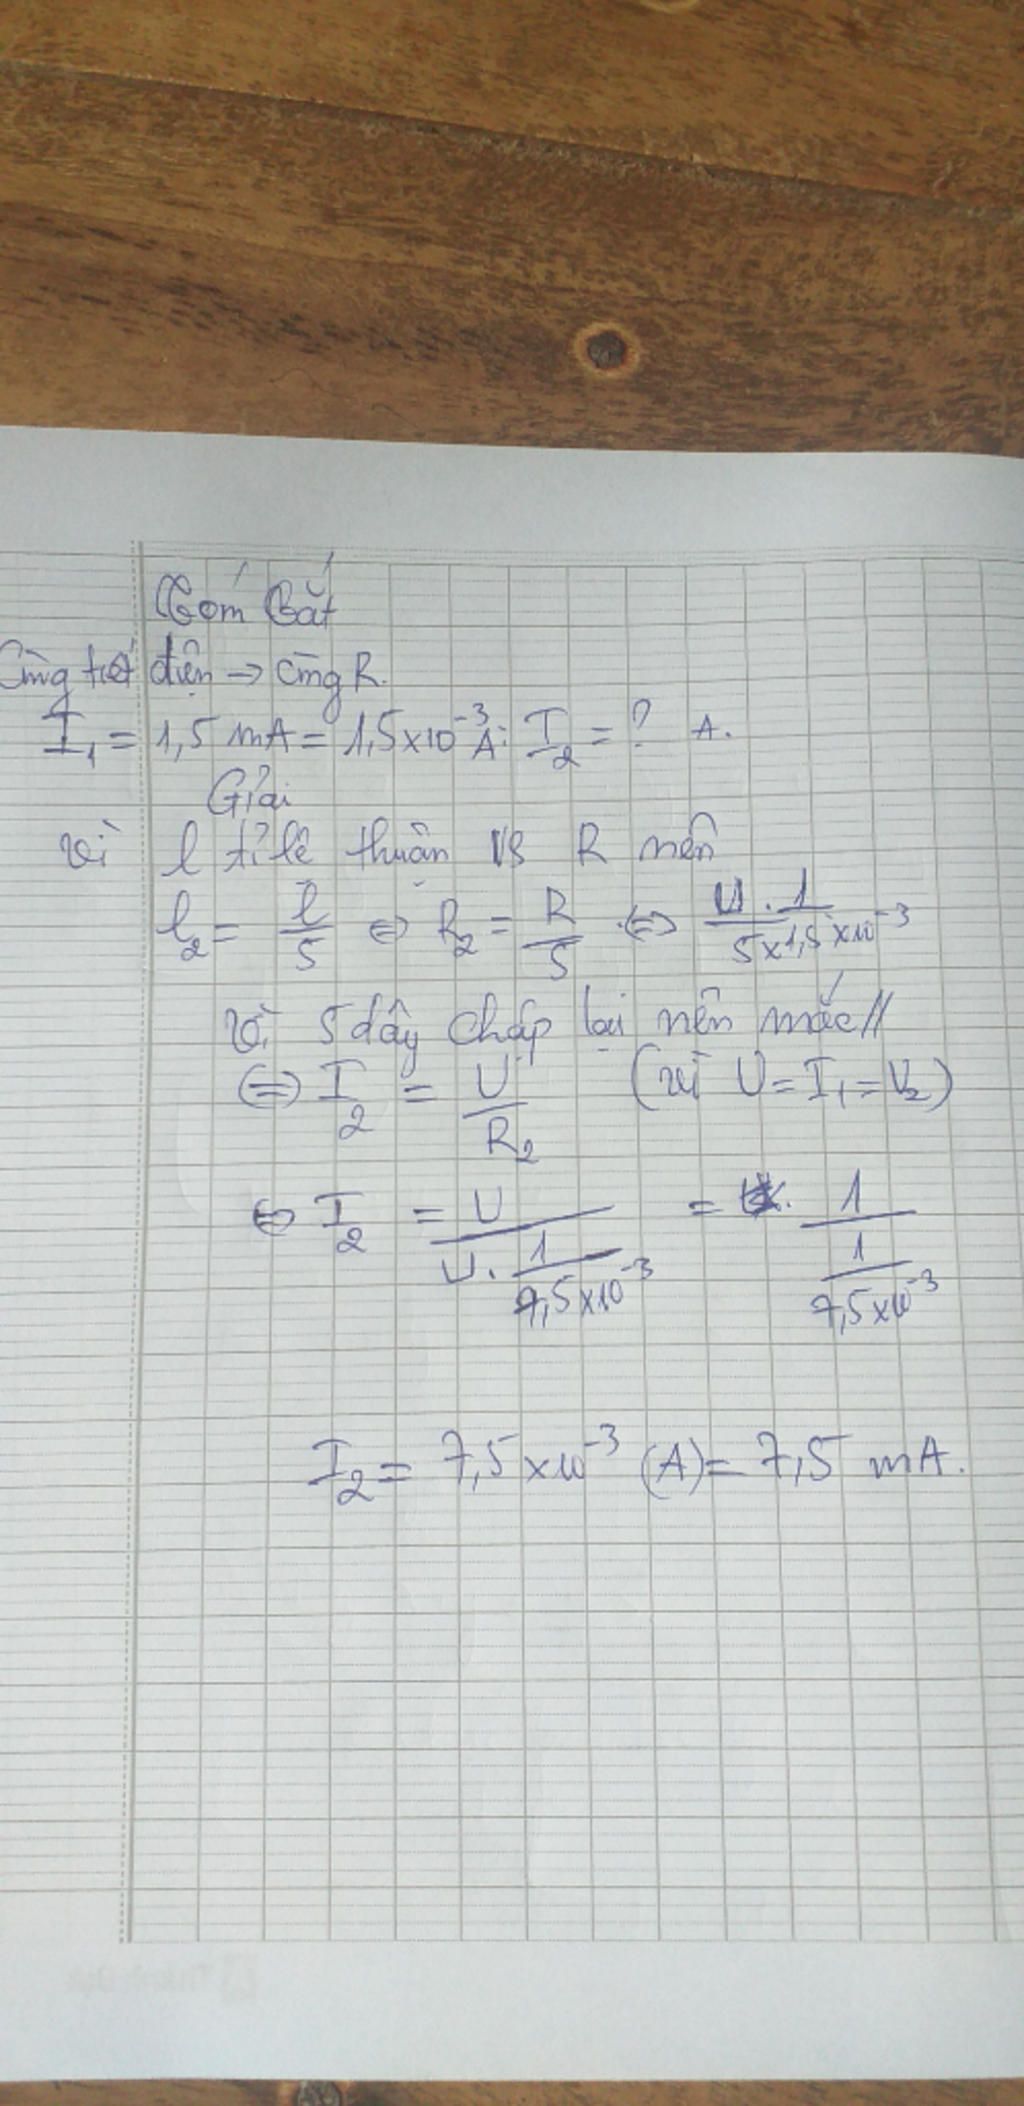 Tóm tắt
Cùng tiết diện → cùng R.
I₁ = 1,5 mA = 1,5x10⁻³ A. I₂ = ? A.
Giải
Vì l tỉ lệ thuận vs R nên
l₂ = l/5 ⇔ R₂ = R/5 ⇔ U.1/5x1,5x10⁻³
Vì 5 dây chập lại nên mắc //
⇔ I₂ = U/R₂ (vì U = I₁ = U₂)
⇔ I₂ = U/(U.1/7,5x10⁻³) = 1/(1/7,5x10⁻³)
I₂ = 7,5x10⁻³ (A) = 7,5 mA.